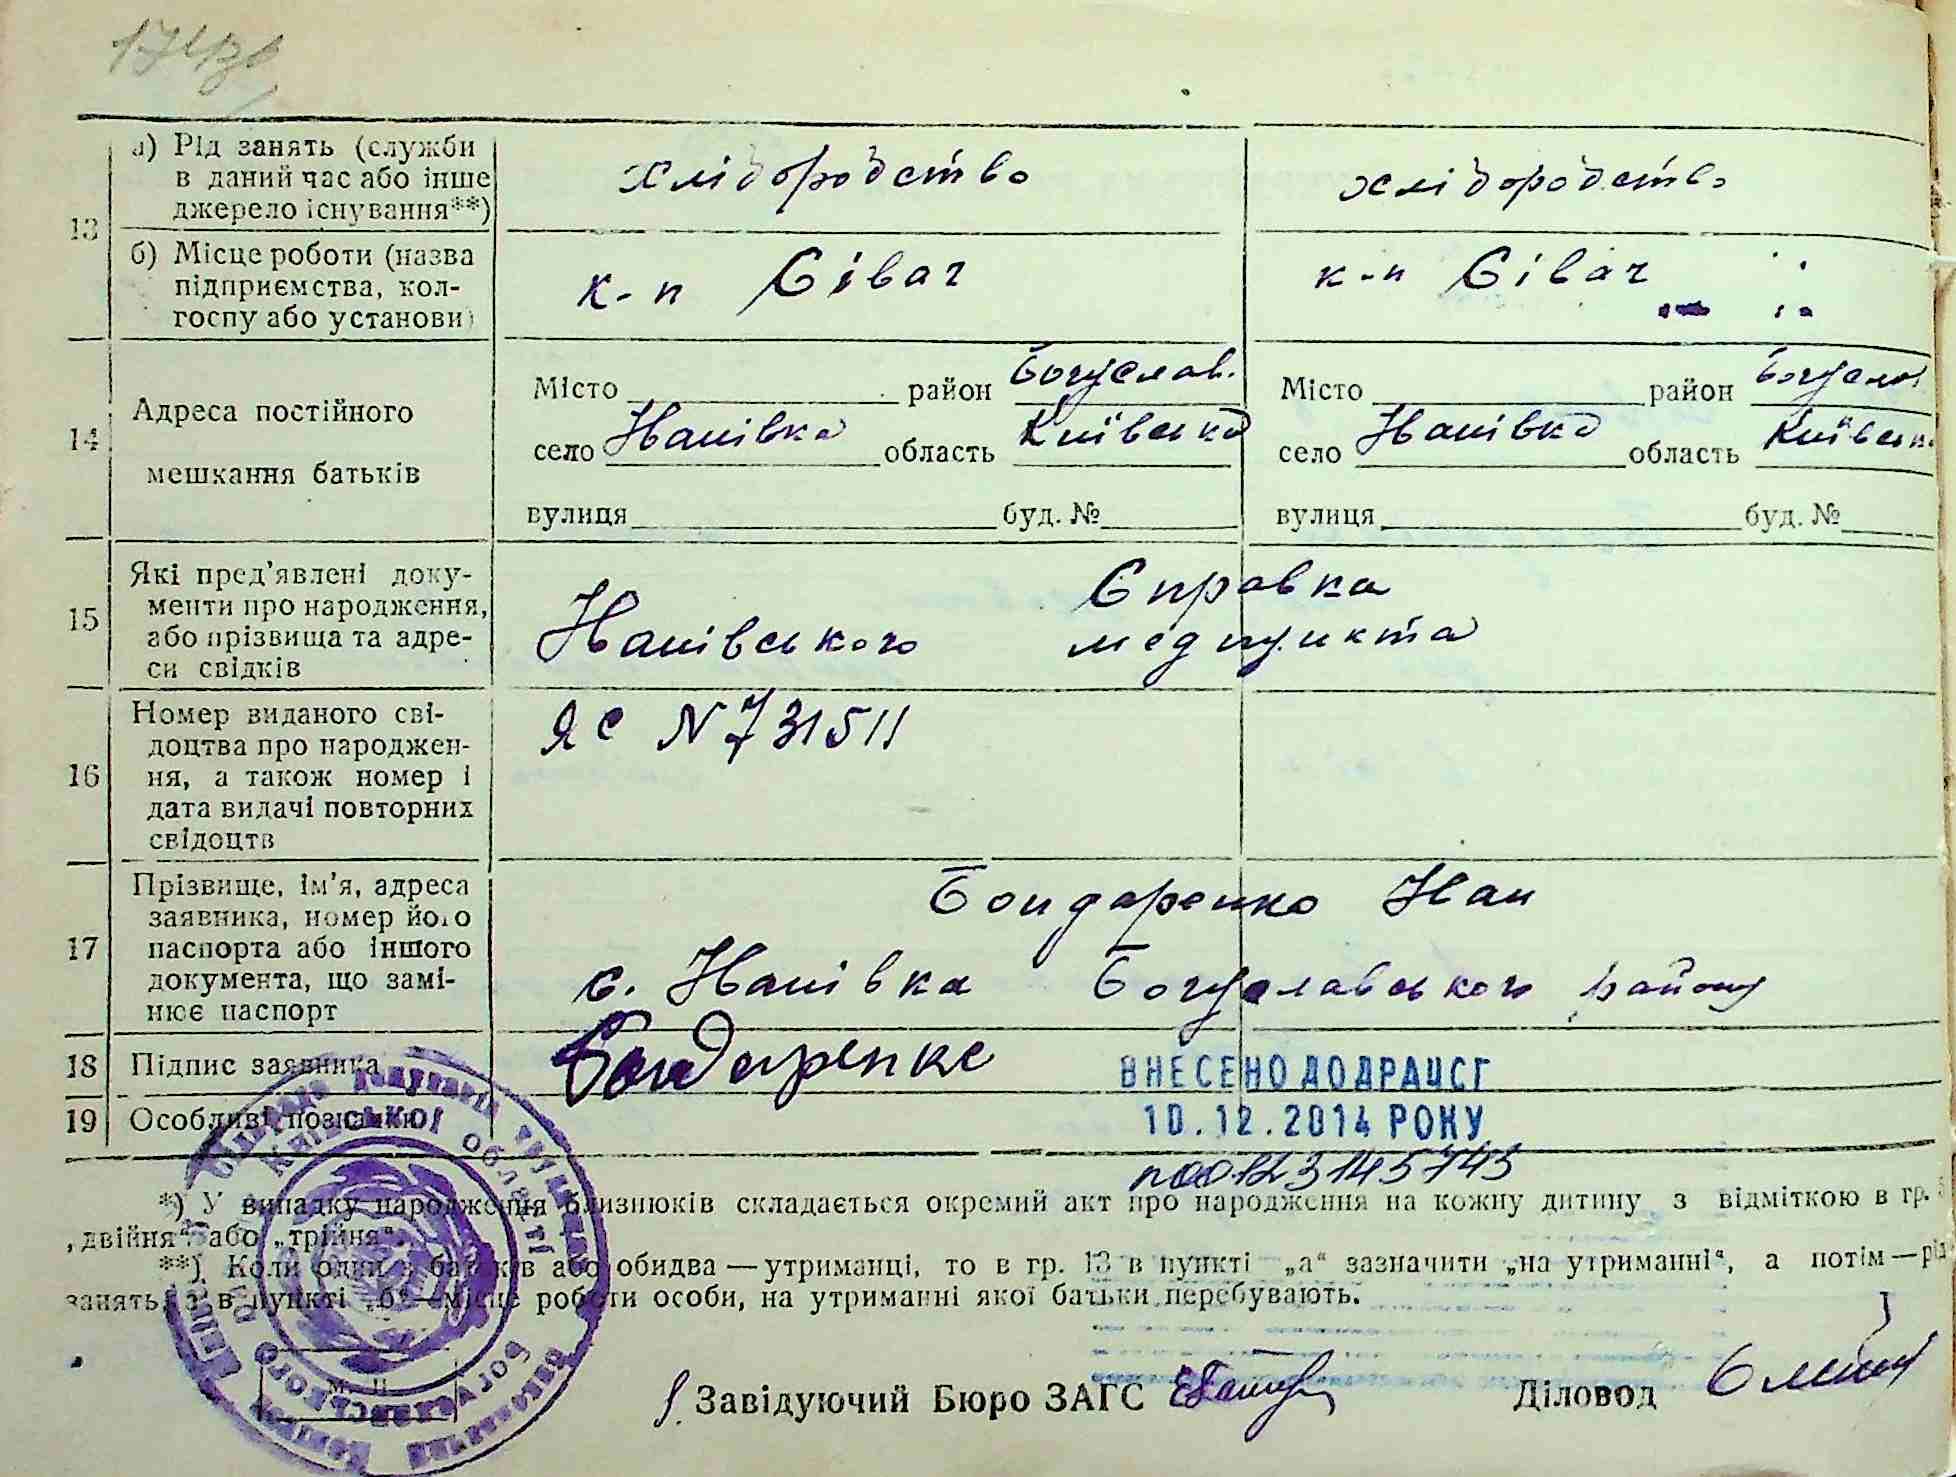 а) Рід занять (служби
в даний час або інше
джерело існування**)
хліборобство
хліборобство
13
б) Місце роботи (назва
підприємства, кол-
госпу або установи)
к-п Сівач
к-п Сівач
14
Адреса постійного
мешкання батьків
Місто район Богуслав.
село Исаївка область Київська
вулиця буд. №
Місто район Богуслав
село Исаївка область Київськ
вулиця буд. №
15
Які пред'явлені доку-
менти про народження,
або прізвища та адре-
си свідків
Справка
медпункта
16
Номер виданого сві-
доцтва про народжен-
ня, а також номер і
дата видачі повторних
свідоцтв
ЯС N 731511
17
Прізвище, ім'я, адреса
заявника, номер його
паспорта або іншого
документа, що замі-
нює паспорт
Бондаренко Иван
с. Богуславського району
18 Підпис заявника Бондаренко
19 Особливі познаки
ВНЕСЕНО ДО ДРАЦСГ
10.12.2014 РОКУ
*) У випадку народження близнюків складається окремий акт про народження на кожну дитину з відміткою в гр.
„двійня“ або „трійня“.
**) Коли один з батьків або обидва — утриманці, то в гр. 13 в пункті „а“ зазначити „на утриманні“, а потім — рід
занять, а в пункті „б“ — місце роботи особи, на утриманні якої батьки перебувають.
М. П.
Завідуючий Бюро ЗАГС
Діловод